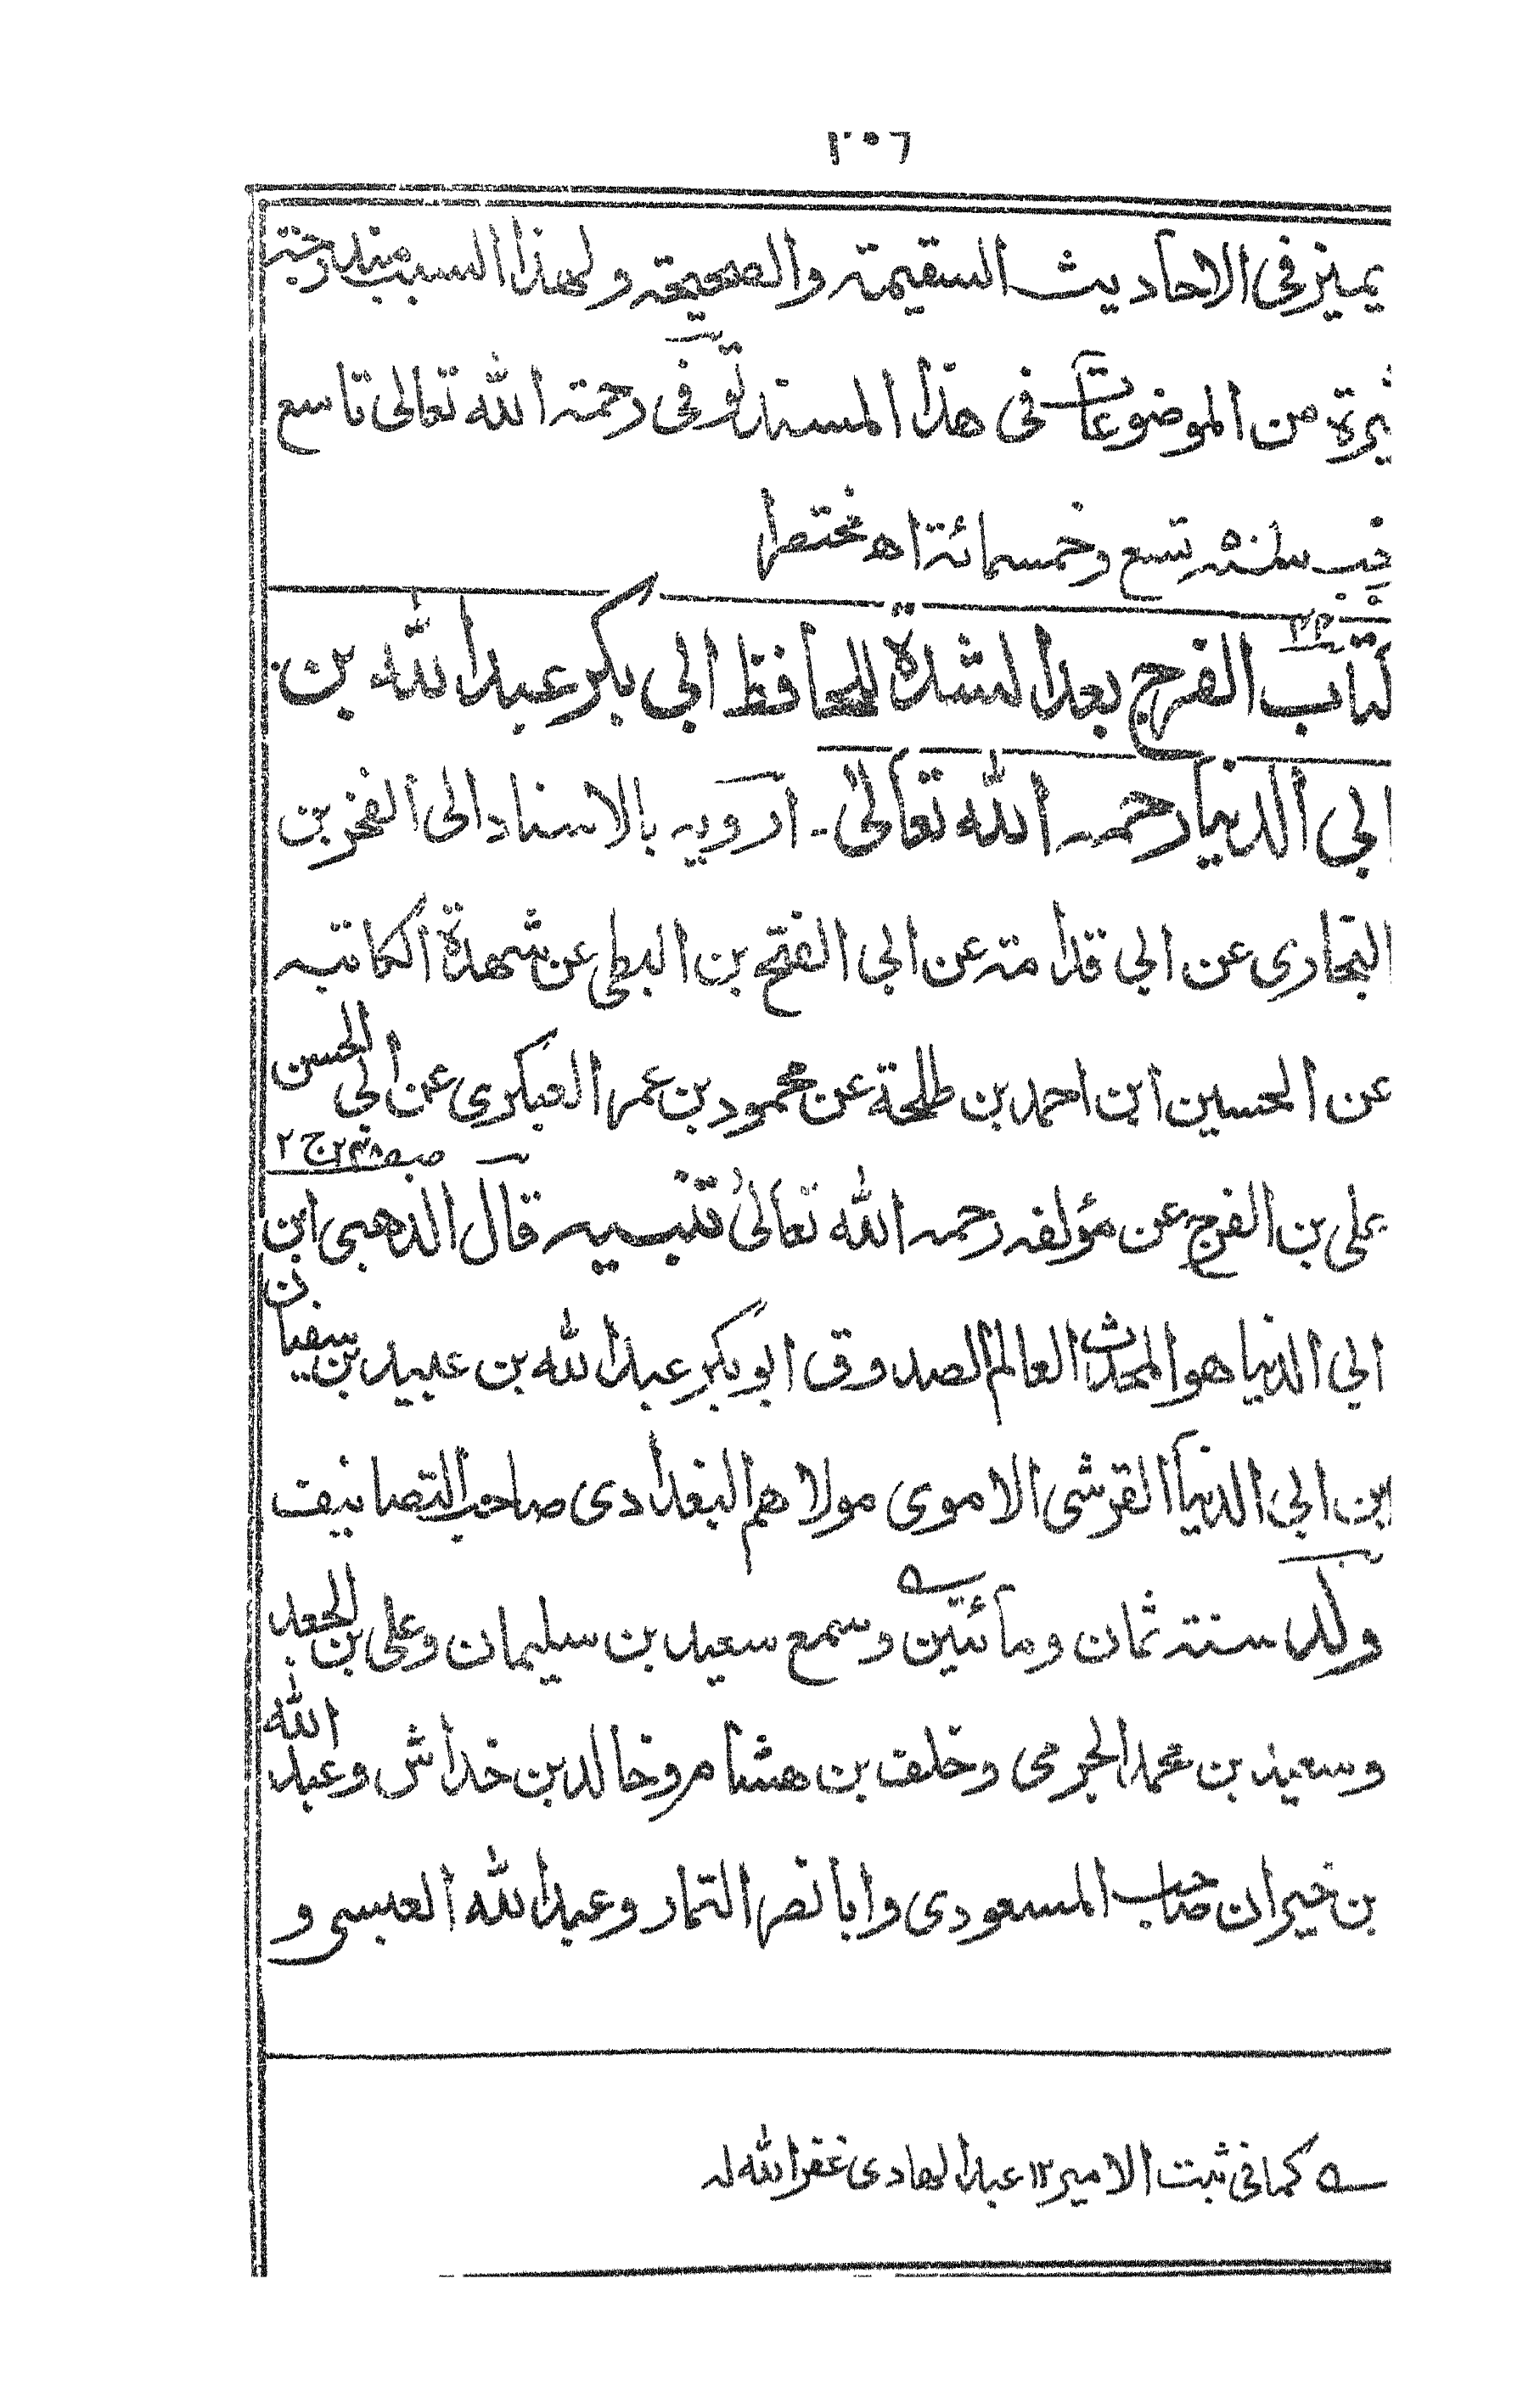 ٢٠٦
يميز في الاحاديث السقيمة والصحيحة ولهذا السبب مندرجة
يرة من الموضوعات في هذا المسند توفى رحمة الله تعالى تاسع
تسع وخمسمائة اه مختصرا
كتاب الفرج بعد الشدة للحافظ ابي بكر عبد الله بن
ابي الدنيا رحمه الله تعالى۔ ارويه بالاسناد الى الفخر بن
البخارى عن ابي قدامة عن ابي الفتح بن البطى عن شهدة الكاتبه
عن الحسين ابن احمد بن طلحة عن محمود بن عمر العبكرى عن ابي الحسن
على بن الفرج عن مؤلفه رحمه الله تعالى تنبيه قال الذهبى ابن
ج ٢
ابي الدنيا هو المحدث العالم الصدوق ابو بكر عبد الله بن عبيد بن سفيان
ابن ابي الدنيا القرشى الاموى مولاهم البغدادى صاحب التصانيف
ولد سنة ثمان ومائتين وسمع سعيد بن سليمان وعلى بن الجعد
وسعيد بن محمد الجرمى وخلف بن هشام وخالد بن خداش وعبد الله
بن خيران صاحب المسعودى وابا نصر التمار وعبد الله العبسى و
ے كما فى ثبت الامير ١٢ عبد الهادى غفر الله له